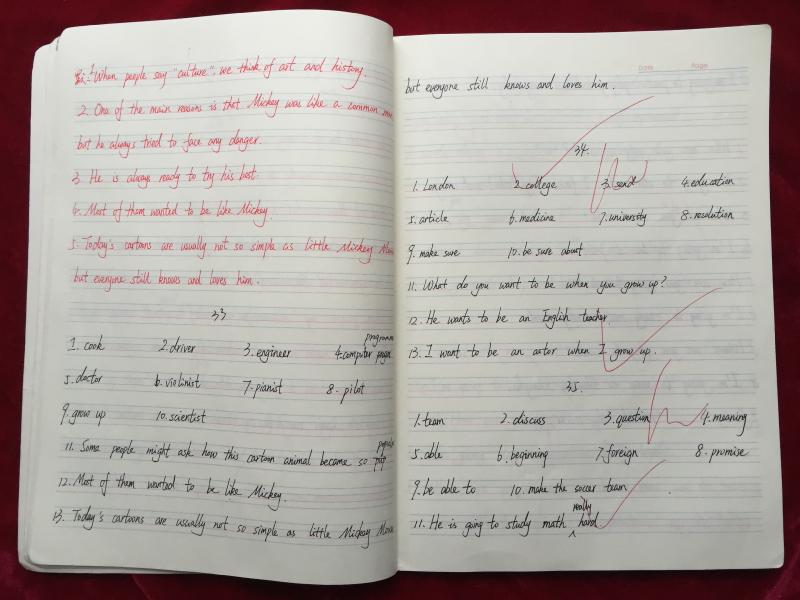 1. When people say "culture", we think of art and history.
2. One of the main reasons is that Mickey was like a common
but he always tried to face any danger.
3. He is always ready to try his best.
4. Most of them wanted to be like Mickey.
5. Today's cartoons are usually not so simple as little Mickey
but everyone still knows and loves him.
33
1. cook 2. driver 3. engineer 4. computer
5. doctor 6. violinist 7. pianist 8. pilot
9. grow up 10. scientist
11. Some people might ask how this cartoon animal became so
12. Most of them wanted to be like Mickey.
13. Today's cartoons are usually not so simple as little Mickey
Date Page
but everyone still knows and loves him.
34.
1. London 2. college 3. send 4. education
5. article 6. medicine 7. university 8. resolution
9. make sure 10. be sure about
11. What do you want to be when you grow up?
12. He wants to be an English teacher
13. I want to be an actor when I grow up.
35.
1. team 2. discuss 3. question 4. meaning
5. able 6. beginning 7. foreign 8. promise
9. be able to 10. make the soccer team
11. He is going to study math really hard